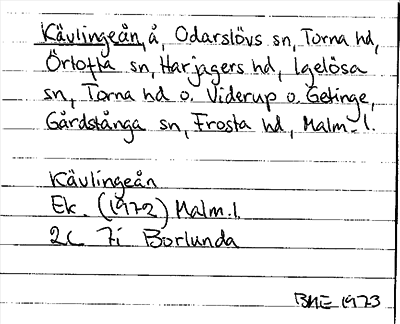 Kävlingeån, å, Odarslövs sn, Torna hd,
Örtofta sn, Harjagers hd, Igelösa
sn, Torna hd o. Viderup o. Getinge,
Gårdstånga sn, Frosta hd, Malm. l.
Kävlingeån
Ek. (1972) Malm. l.
2C 7i Borlunda
BME 1973